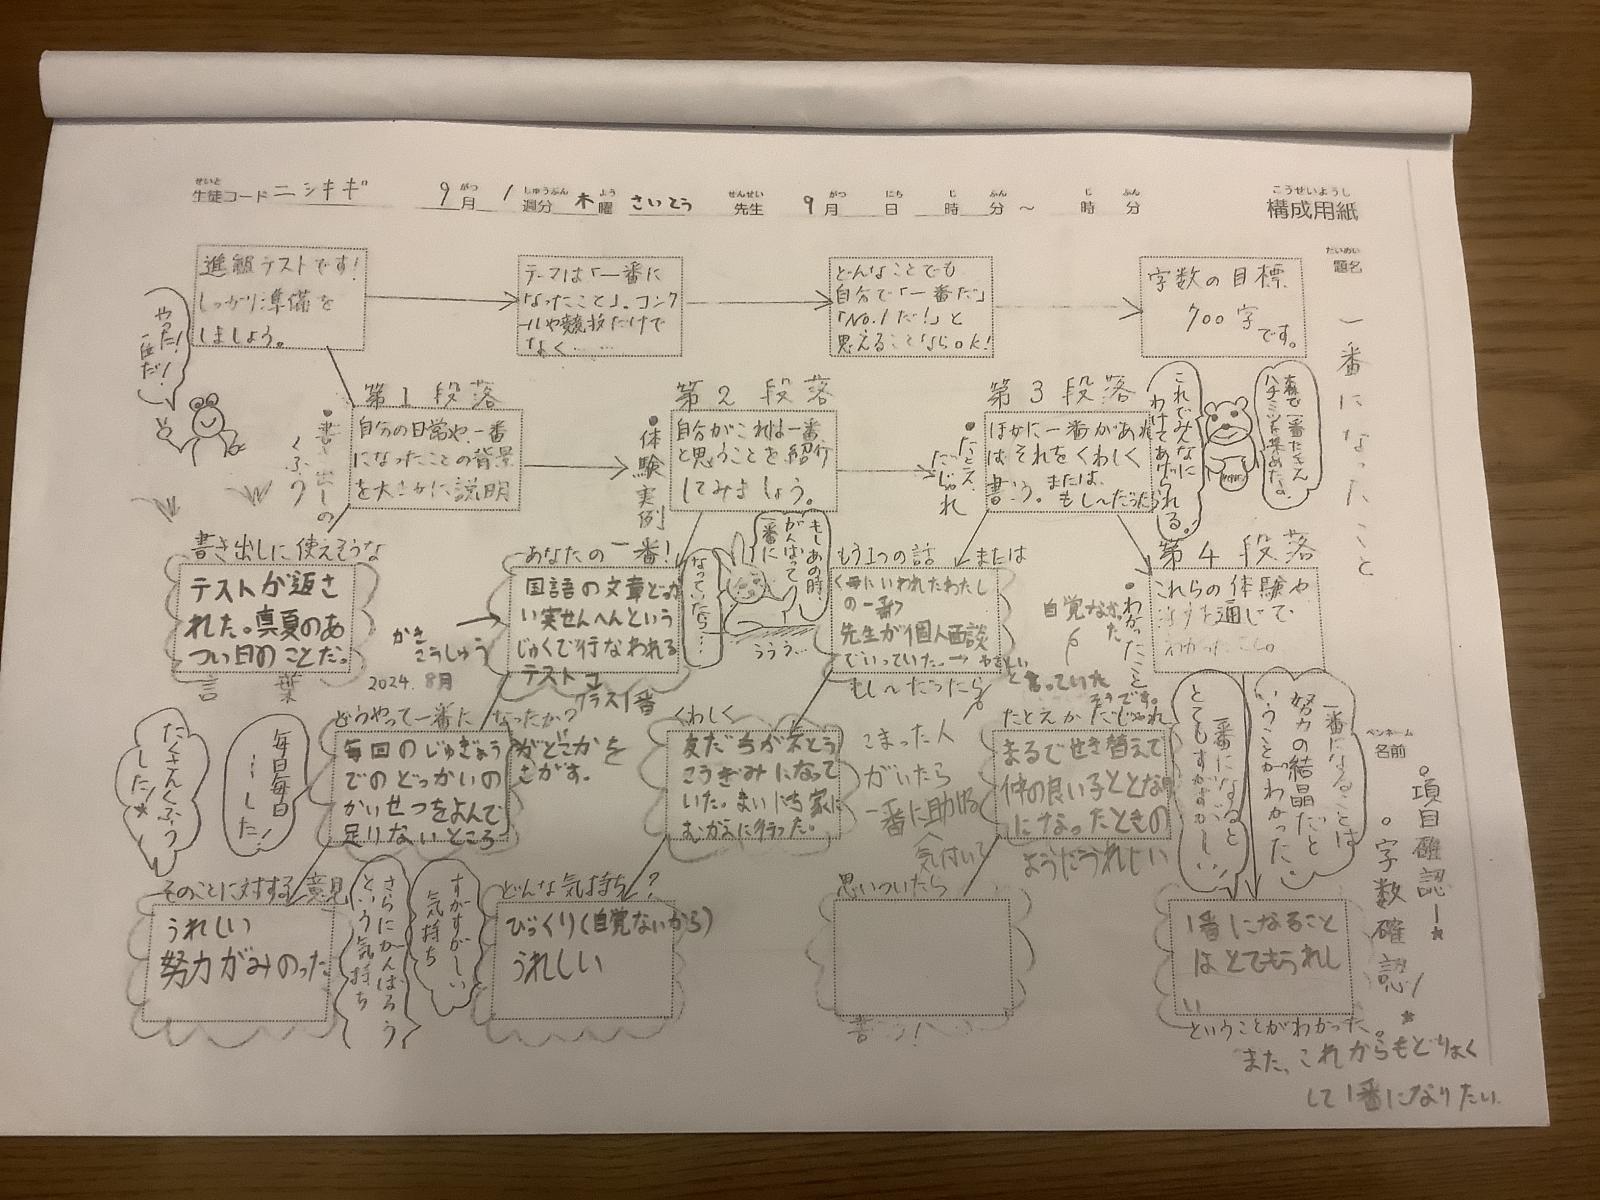 せいと
生徒コード ニシキギ 9月 1週分 木曜 さいとう 先生 9月 日 時 分 ～ 時 分
がつ しゅうぶん よう せんせい がつ にち じ ふん じ ふん
こうせいようし
構成用紙
だいめい
題名
一番になったこと
進級テストです!
しっかり準備を
しましょう。
テーマは「一番に
なったこと」。コンク
ールや競技だけで
なく……
どんなことでも
自分で「一番だ」
「No.1だ!」と
思えることならOK!
字数の目標
700字
です。
やった!
一位だ!
第1段落
自分の日常や、一番
になったことの背景
を大まかに説明
・書き出しの
くふう
第2段落
自分がこれは一番
と思うことを紹介
してみましょう。
・体験実例
第3段落
ほかに一番があれ
ばそれをくわしく
書こう。または、
もし～だったら
・たとえ
だじゃれ
これでみんなに
わけてあげられる。
森で一番たくさん
ハチミツを集めたな。
第4段落
これらの体験や
を通じて
わかったこと。
・わかったこと
書き出しに使えそうな
テストが返さ
れた。真夏のあ
つい日のことだ。
言葉
かき
こうしゅう
2024.8月
あなたの一番!
国語の文章どっか
い実せんへんという
じゅくで行なわれる
テスト
クラス1番
もしあの時、
がんばって
一番に
なってたな…
ううう…
もう1つの話 または
<母にいわれたわたし
の一番>
先生が個人面談
でいっていた。→ やさしい
と言っていた
そうです。
もし～だったら
自覚なかっ
た
どうやって一番になったか?
毎回のじゅぎょう
でのどっかいの
かいせつをよんで
足りないところ
がどこかを
さがす。
毎日毎日
…した!
たくさんくふう
した!
くわしく
友だちが不とう
こうぎみになって
いた。まいにち家に
むかえに行った。
こまった人
がいたら
一番に助ける
気付いて
たとえか だじゃれ
まるでせき替えで
仲の良い子ととなり
になったときの
ようにうれしい
一番になると
とてもすがすがしい
一番になることは
努力の結晶だと
いうことがわかった
ペンネーム
名前
・項目確認!
・字数確認!
そのことに対する意見
うれしい
努力がみのった
さらにがんばろう
という気持ち
すがすがしい
気持ち
どんな気持ち?
びっくり(自覚ないから)
うれしい
思いついたら
書こう!
1番になること
はとてもうれし
い
ということがわかった。
また、これからもどりょく
して1番になりたい。